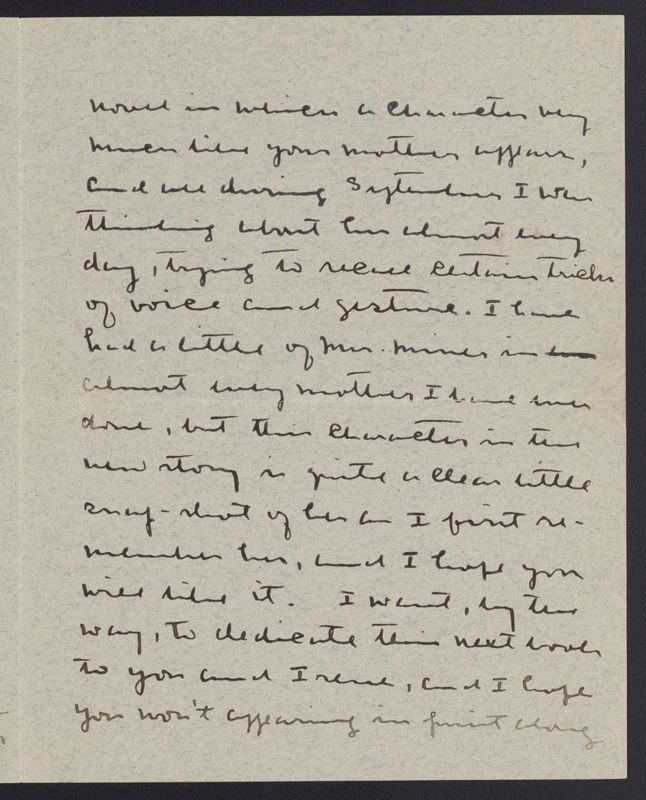 novel in which a character very
much like your mother appears,
and all during September I was
thinking about her almost every
day, trying to recall certain tricks
of voice and gesture. I have
had a little of Mrs. Miner in
almost every mother I have ever
done, but this character in the
new story is quite a clear little
snap-shot of her as I first re-
member her, and I hope you
will like it. I want, by the
way, to dedicate this next book
to you and Irene, and I hope
you won't appearing in print along